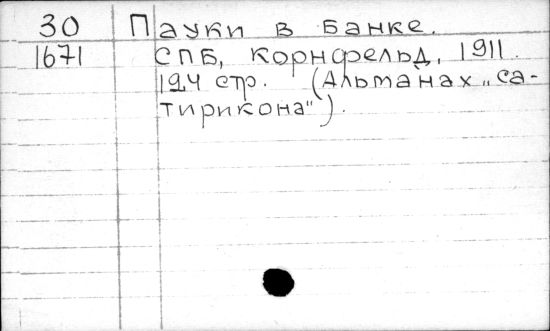 30 Пауки в банке.
1671 СПБ, Корнфельд, 1911.
124 стр. (Альманах „Са-
тирикона").